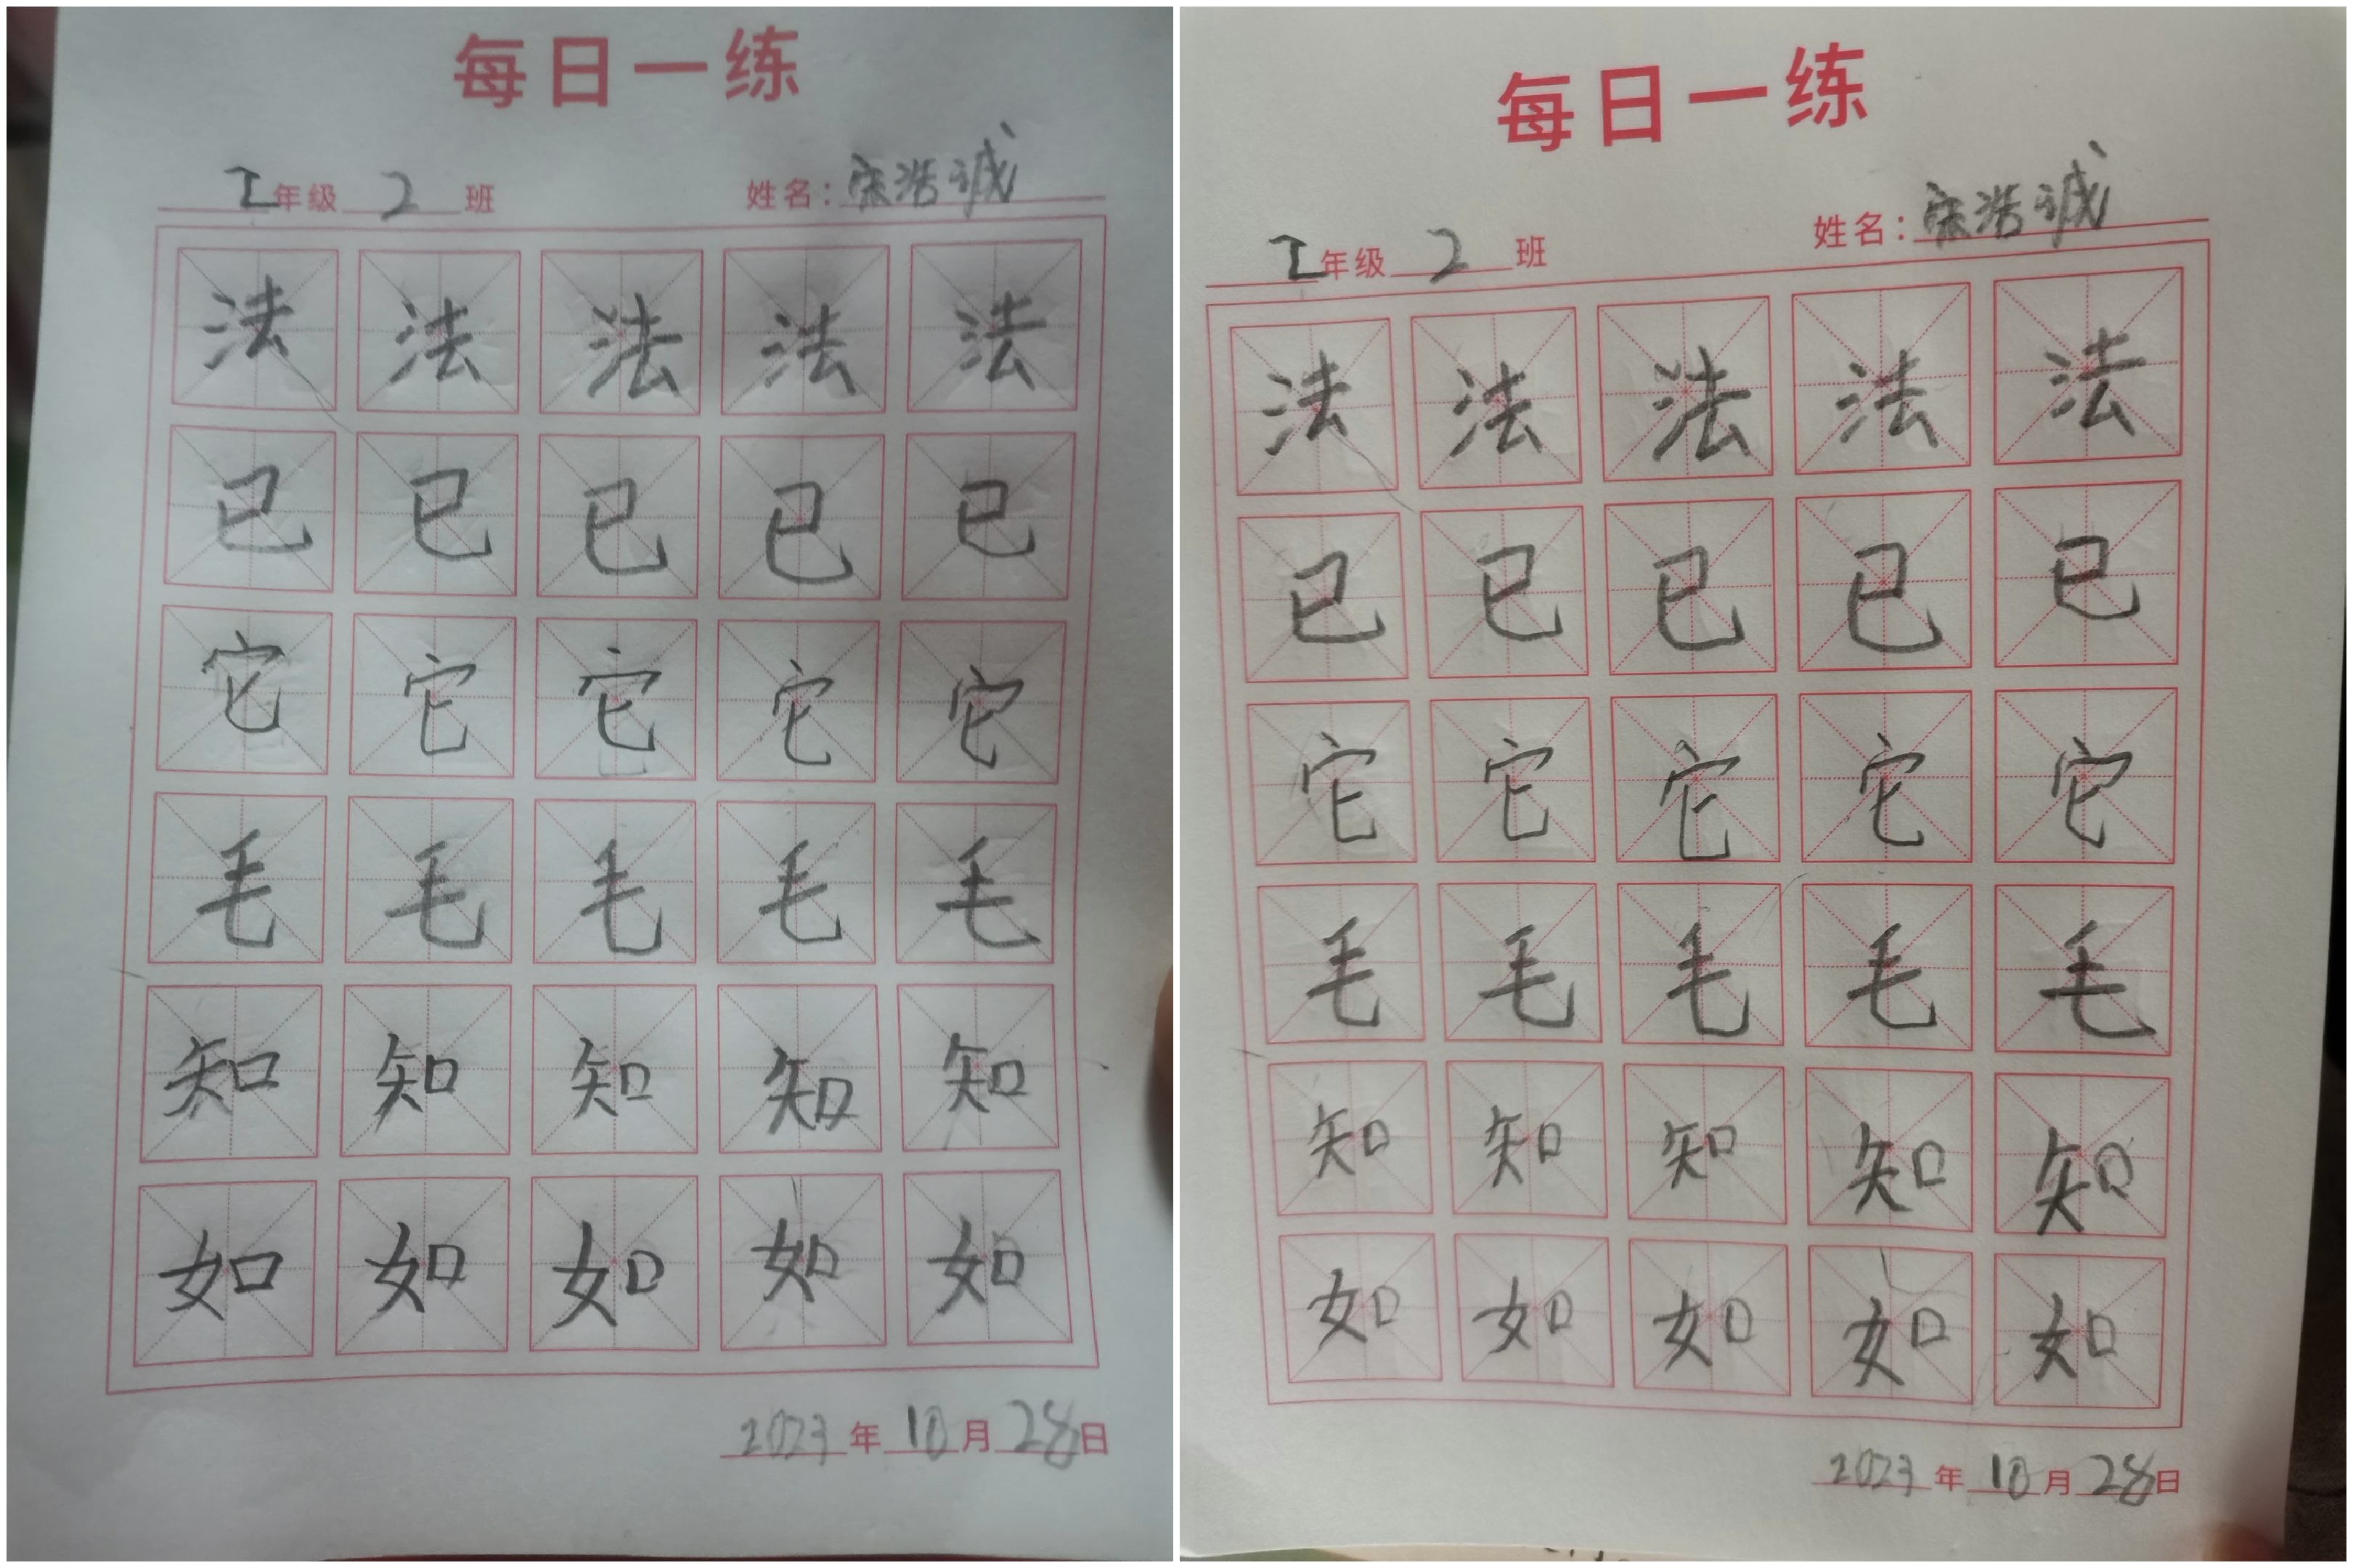 每日一练
工年级 2 班 姓名：宋浩诚
法 法 法 法 法
已 已 已 已 已
它 它 它 它 它
毛 毛 毛 毛 毛
知 知 知 知 知
如 如 如 如 如
2023 年 10 月 28 日
每日一练
工年级 2 班 姓名：宋浩诚
法 法 法 法 法
已 已 已 已 已
它 它 它 它 它
毛 毛 毛 毛 毛
知 知 知 知 知
如 如 如 如 如
2023 年 10 月 28 日